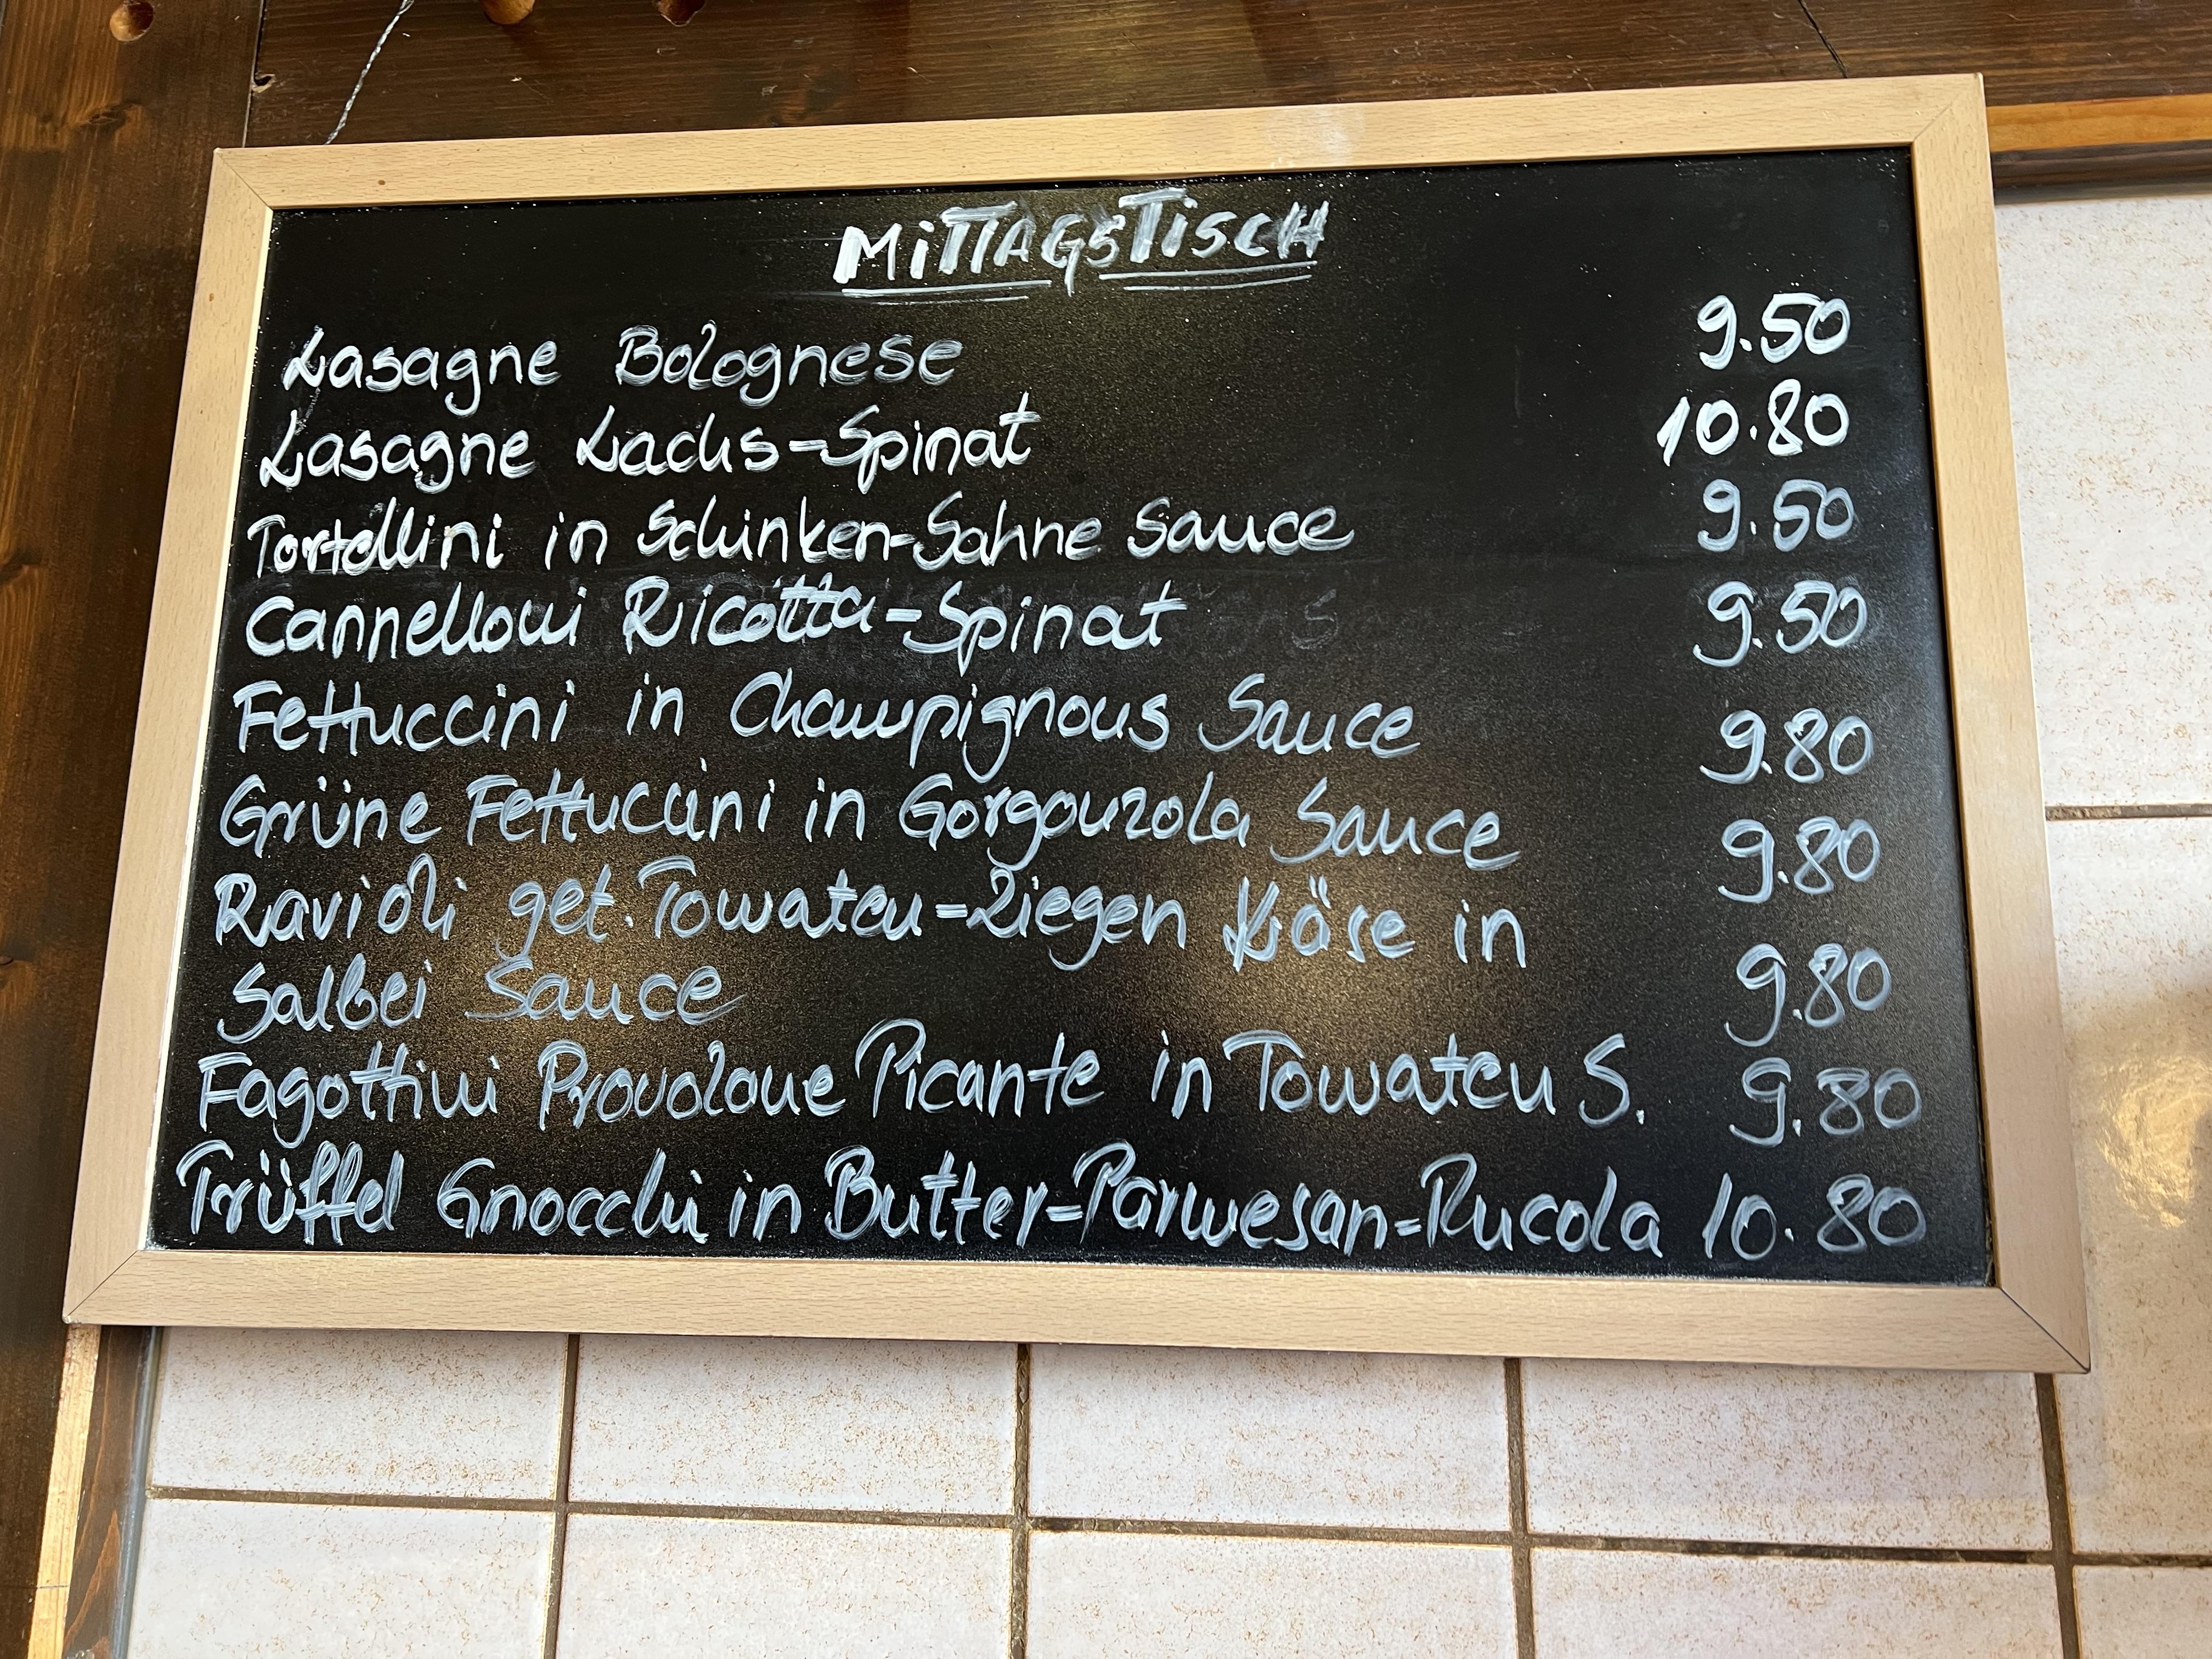 MiTTAGSTiSCH
Lasagne Bolognese 9.50
Lasagne Lachs-Spinat 10.80
Tortellini in Schinken-Sahne Sauce 9.50
Cannelloni Ricotta-Spinat 9.50
Fettuccini in Champignons Sauce 9.80
Grüne Fettuccini in Gorgonzola Sauce 9.80
Ravioli get. Tomaten-Ziegen Käse in
Salbei Sauce 9.80
Fagottini Provolone Picante in Tomaten S. 9.80
Trüffel Gnocchi in Butter-Parmesan-Rucola 10.80